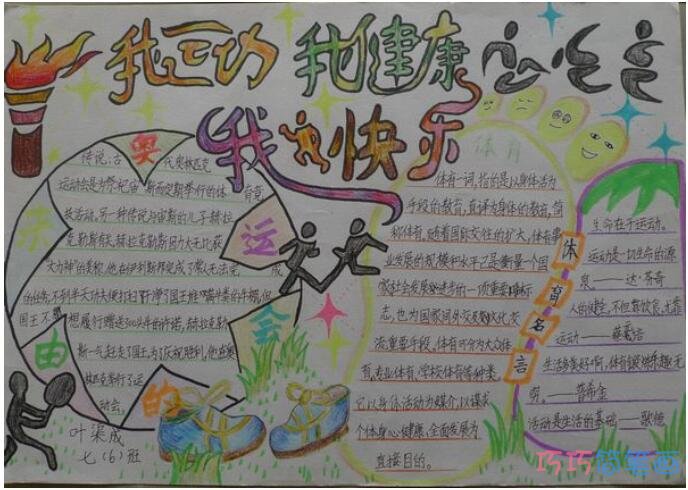 我运动 我健康
我快乐
传说:古 代奥林匹克
运动会是为祭祀宙斯而定期举行的体育竞
技活动。另一种传说与宙斯的儿子赫拉
克勒斯有关。赫拉克勒斯因力大无比获
"大力神"的美称。他在伊利斯邦完成了常人无法完成
的任务,不到半天功夫便扫干净了国王堆
国王不想履行赠送300头牛的许诺,赫拉克勒
斯一气赶走了国王。为了庆祝胜利,他在奥
林匹克举行了运
动会。
奥
运
会
的
由
来
叶渠成
七(6)班
体育
体育一词,指的是以身体活为
手段的教育,直译为身体的教育,简
称体育。随着国际交往的扩大,体育事
业发展的规模和水平已是衡量一个国
家社会发展进步的一项重要标
志,也为国家间外交及文化交
流重要手段。体育可分为大众体
育,专业体育,学校体育等种类。
它以身体活动为媒介,以谋求
个体身心健康,全面发展为
直接目的。
体
育
名
言
生命在于运动。
运动是一切生命的源
泉。——达·芬奇
人的健全,不但靠饮食,尤靠
运动——蔡元培
生活多美好啊,体育锻炼乐趣无
穷。——普希金
活动是生活的基础——歌德
巧巧简笔画